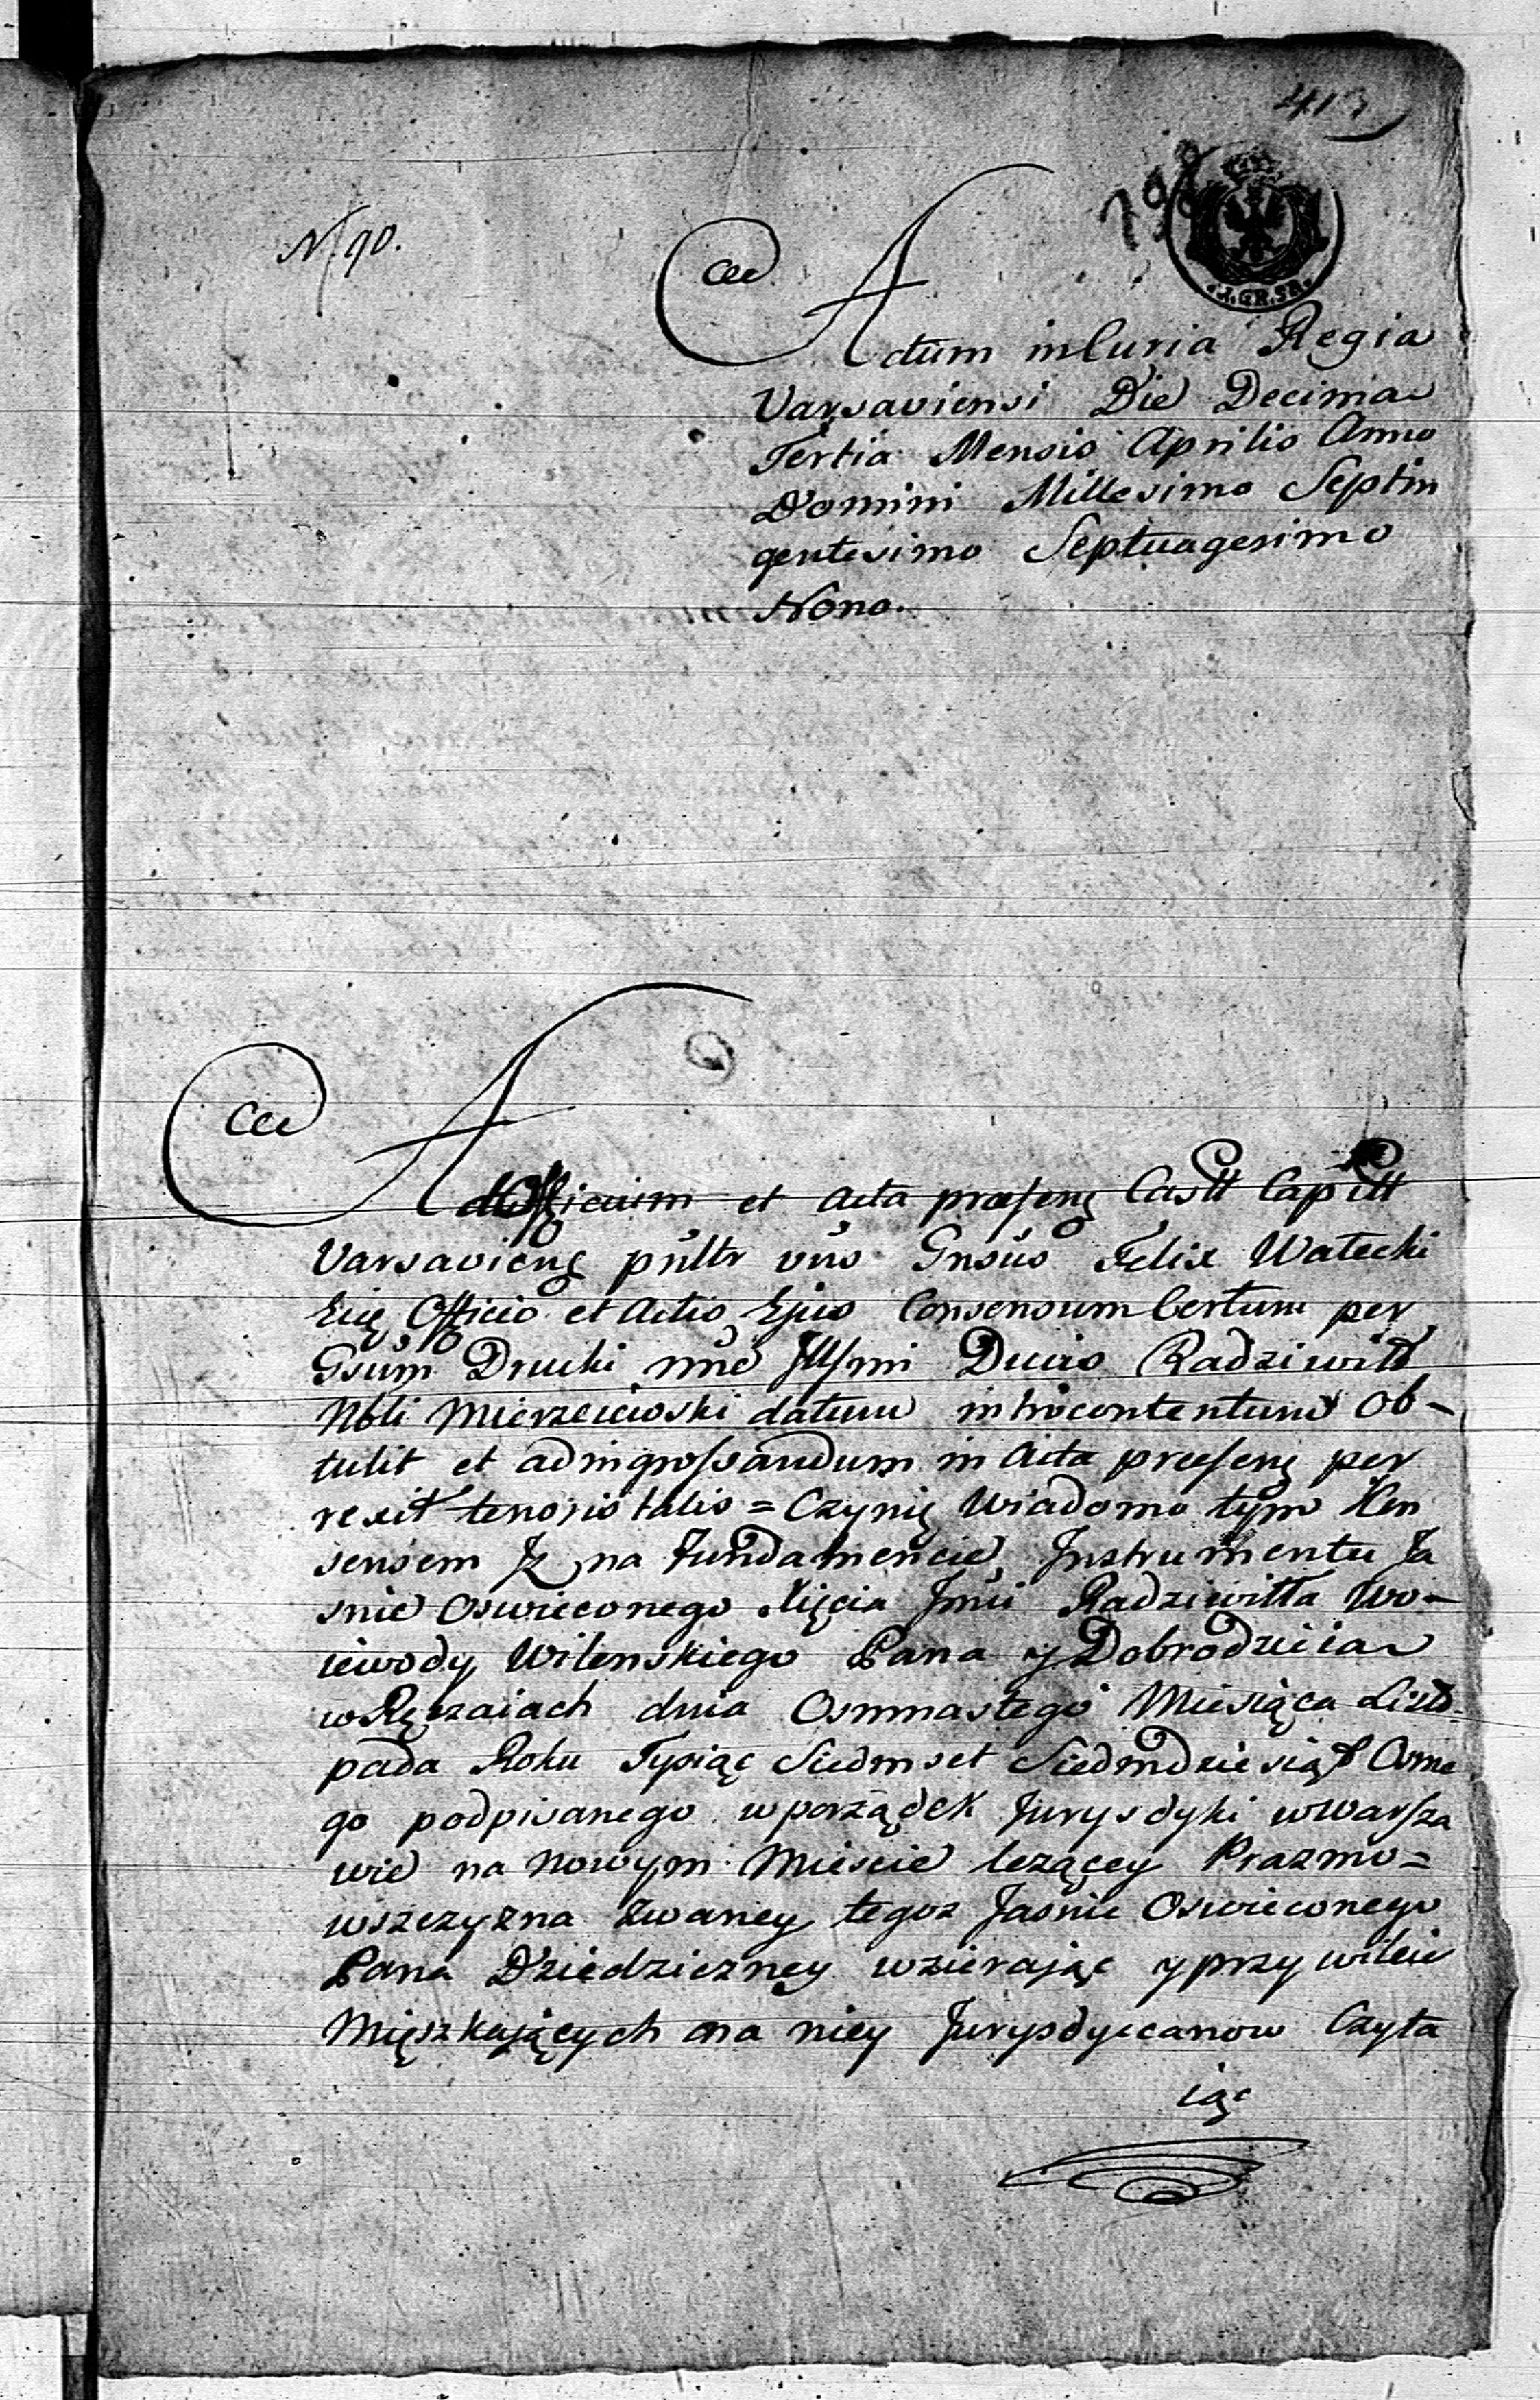 413
798
N 90.
J. GR. SR.
Actum in Curia Regia
Varsaviensi Die Decima
Tertia Mensis Aprilis Anno
Domini Millesimo Septin
gentesimo Septuagesimo
Nono.
Ad Officium et Acta præsenę Castt Capitt
Varsavienę psnltr vns Gnsus Felix Watecki
Eię Officio et Actis Ejus Consensum Certum per
Gsum Drucki nne Illsmi Ducis Radziwiłł
Nbli Mierzeiewski datum introcontentum ob-
tulit et ad ingrossandum in Acta præsenę per
rexit tenoris talis = Czynię Wiadomo tym Kon
sensem Jż na Fundamencie Instrumentu Ja
snie Oswieconego Xięcia Jmći Radziwiłła Wo-
iewody Wilenskiego Pana y Dobrodzieia
w dnia Osmnastego Miesiąca Listo-
pada Roku Tysiąc Siedmset Siedmdziesiąt Osme
go podpisanego w porządek Jurysdyki w Warsza
wie na Nowym Miescie lezącey Prazmo=
wszczyzna zwaney tegoz Jasnie Oswieconego
Pana Dziedziczney wzierając y przywileie
Mięszkających na niey Jurysdyccanow Czyta
iąc